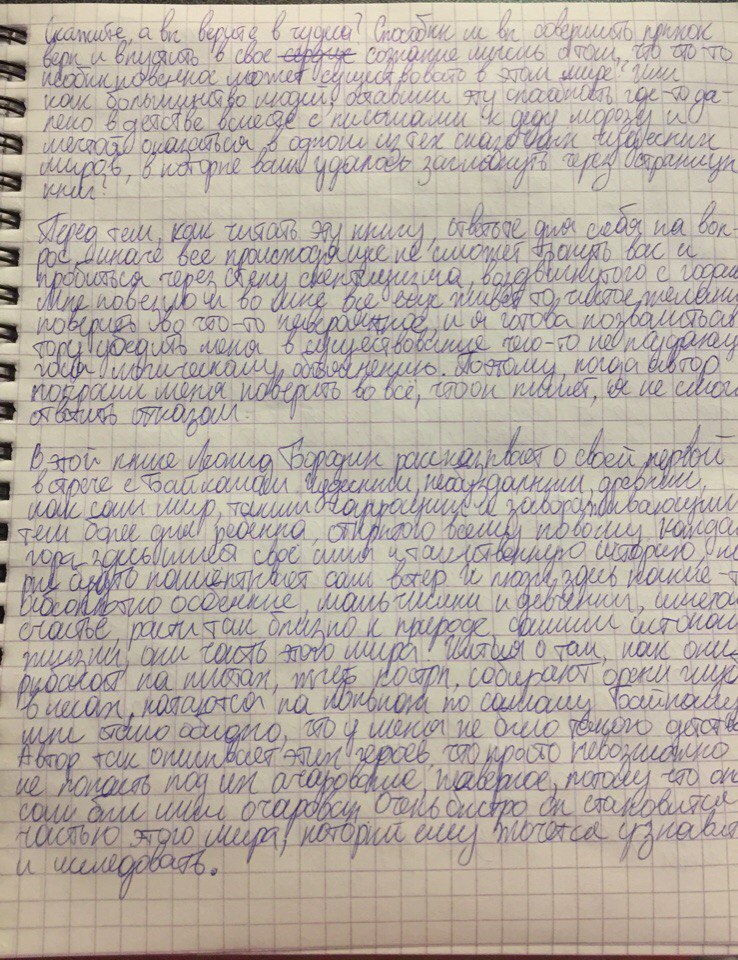 Скажите, а вы верите в чудеса? Способны ли вы совершить прыжок
веры и впустить в свое сердце сознание мысль о том, что что-то
необыкновенное может существовать в этом мире? Или
как большинство людей, оставили эту способность где-то да-
леко в детстве вместе с письмами к деду морозу и
мечтой оказаться в одном из тех сказочных чудесных
миров, в которые вам удалось заглянуть через страницы
книг?
Перед тем, как читать эту книгу, ответьте для себя на воп-
рос, иначе все происходящее не сможет тронуть вас и
пробиться через стену скептицизма, воздвигнутого с годами
Мне повезло и во мне все еще живет то чистое желание
поверить во что-то невероятное, и я готова позволить ав
тору убедить меня в существование чего-то не поддающе
гося логическому объяснению. Поэтому, когда автор
попросил меня поверить во всё, что он пишет, я не смогла
ответить отказом.
В этой книге Леонид Бородин рассказывает о своей первой
встрече с Байкалом чудесным, необузданным, древним,
как сам мир, таким и завораживающим
тем более для ребенка, открытого всему новому. Каждая
гора здесь имеет свое имя и таинственную историю, ко
рую будто нашептывает сам ветер. И люди здесь какие-то
абсолютно особенные, мальчишки и девчонки, имеющие
счастье расти так близко к природе, самим истокам
жизни, они часть этого мира. Читая о том, как они
рыбачат на плотах, жгут костры, собирают орехи
в лесах, катаются на коньках по самому Байкалу
мне стало обидно, что у меня не было такого детства
Автор так описывает этих героев, что просто невозможно
не попасть под их очарование, наверное, потому что он
сам был ими очарован. Очень быстро он становится
частью этого мира, который ему хочется узнавать
и исследовать.